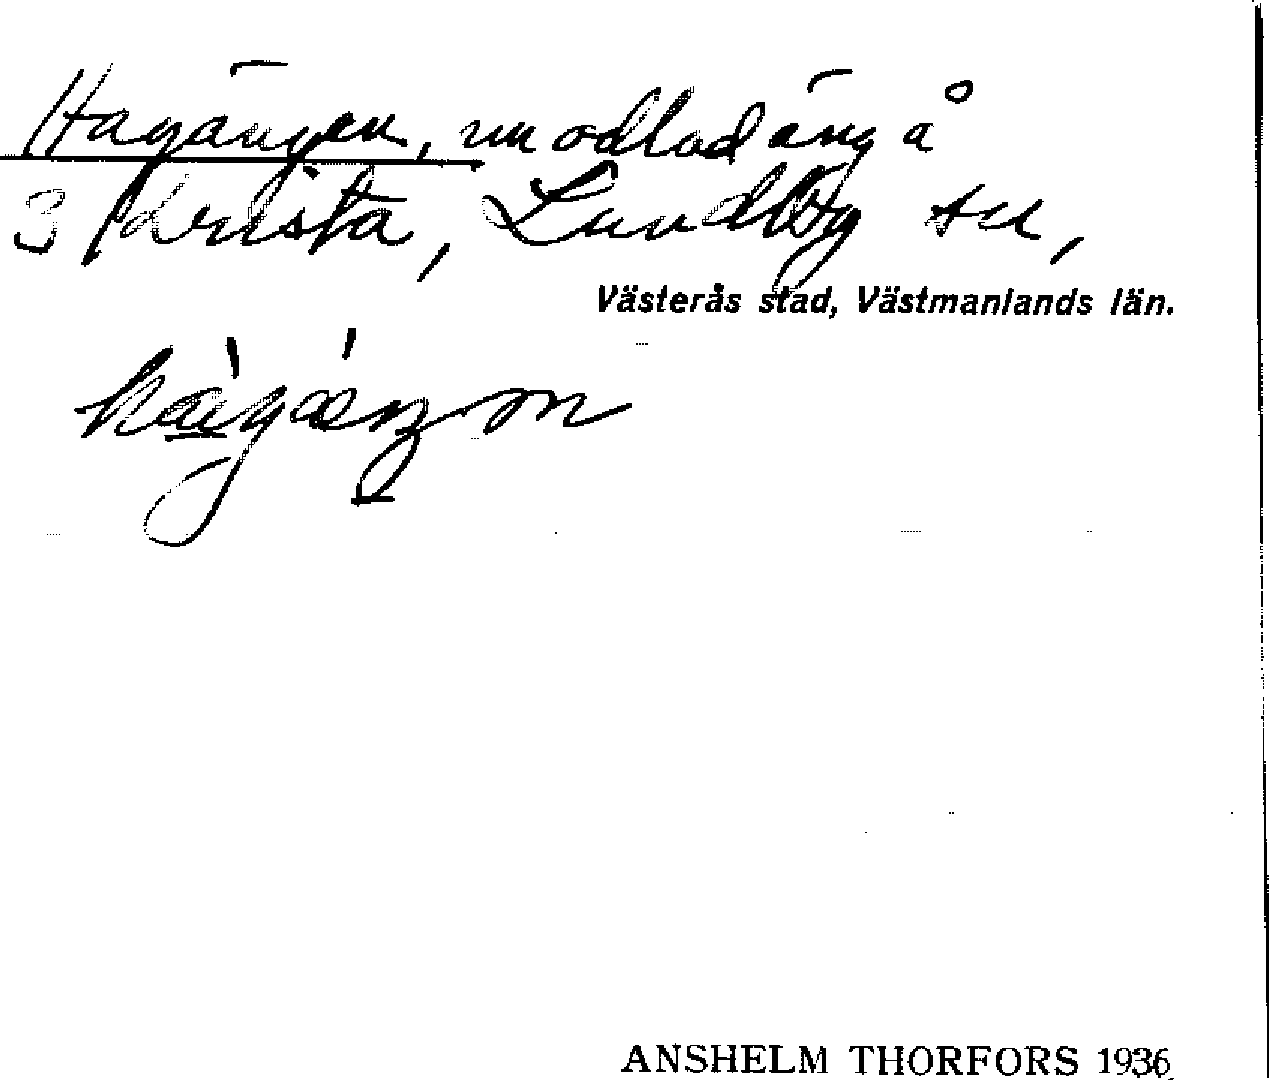 Hagängen, nu odlad äng å
3 Lundby sn,
Västerås stad, Västmanlands län.
ANSHELM THORFORS 1936